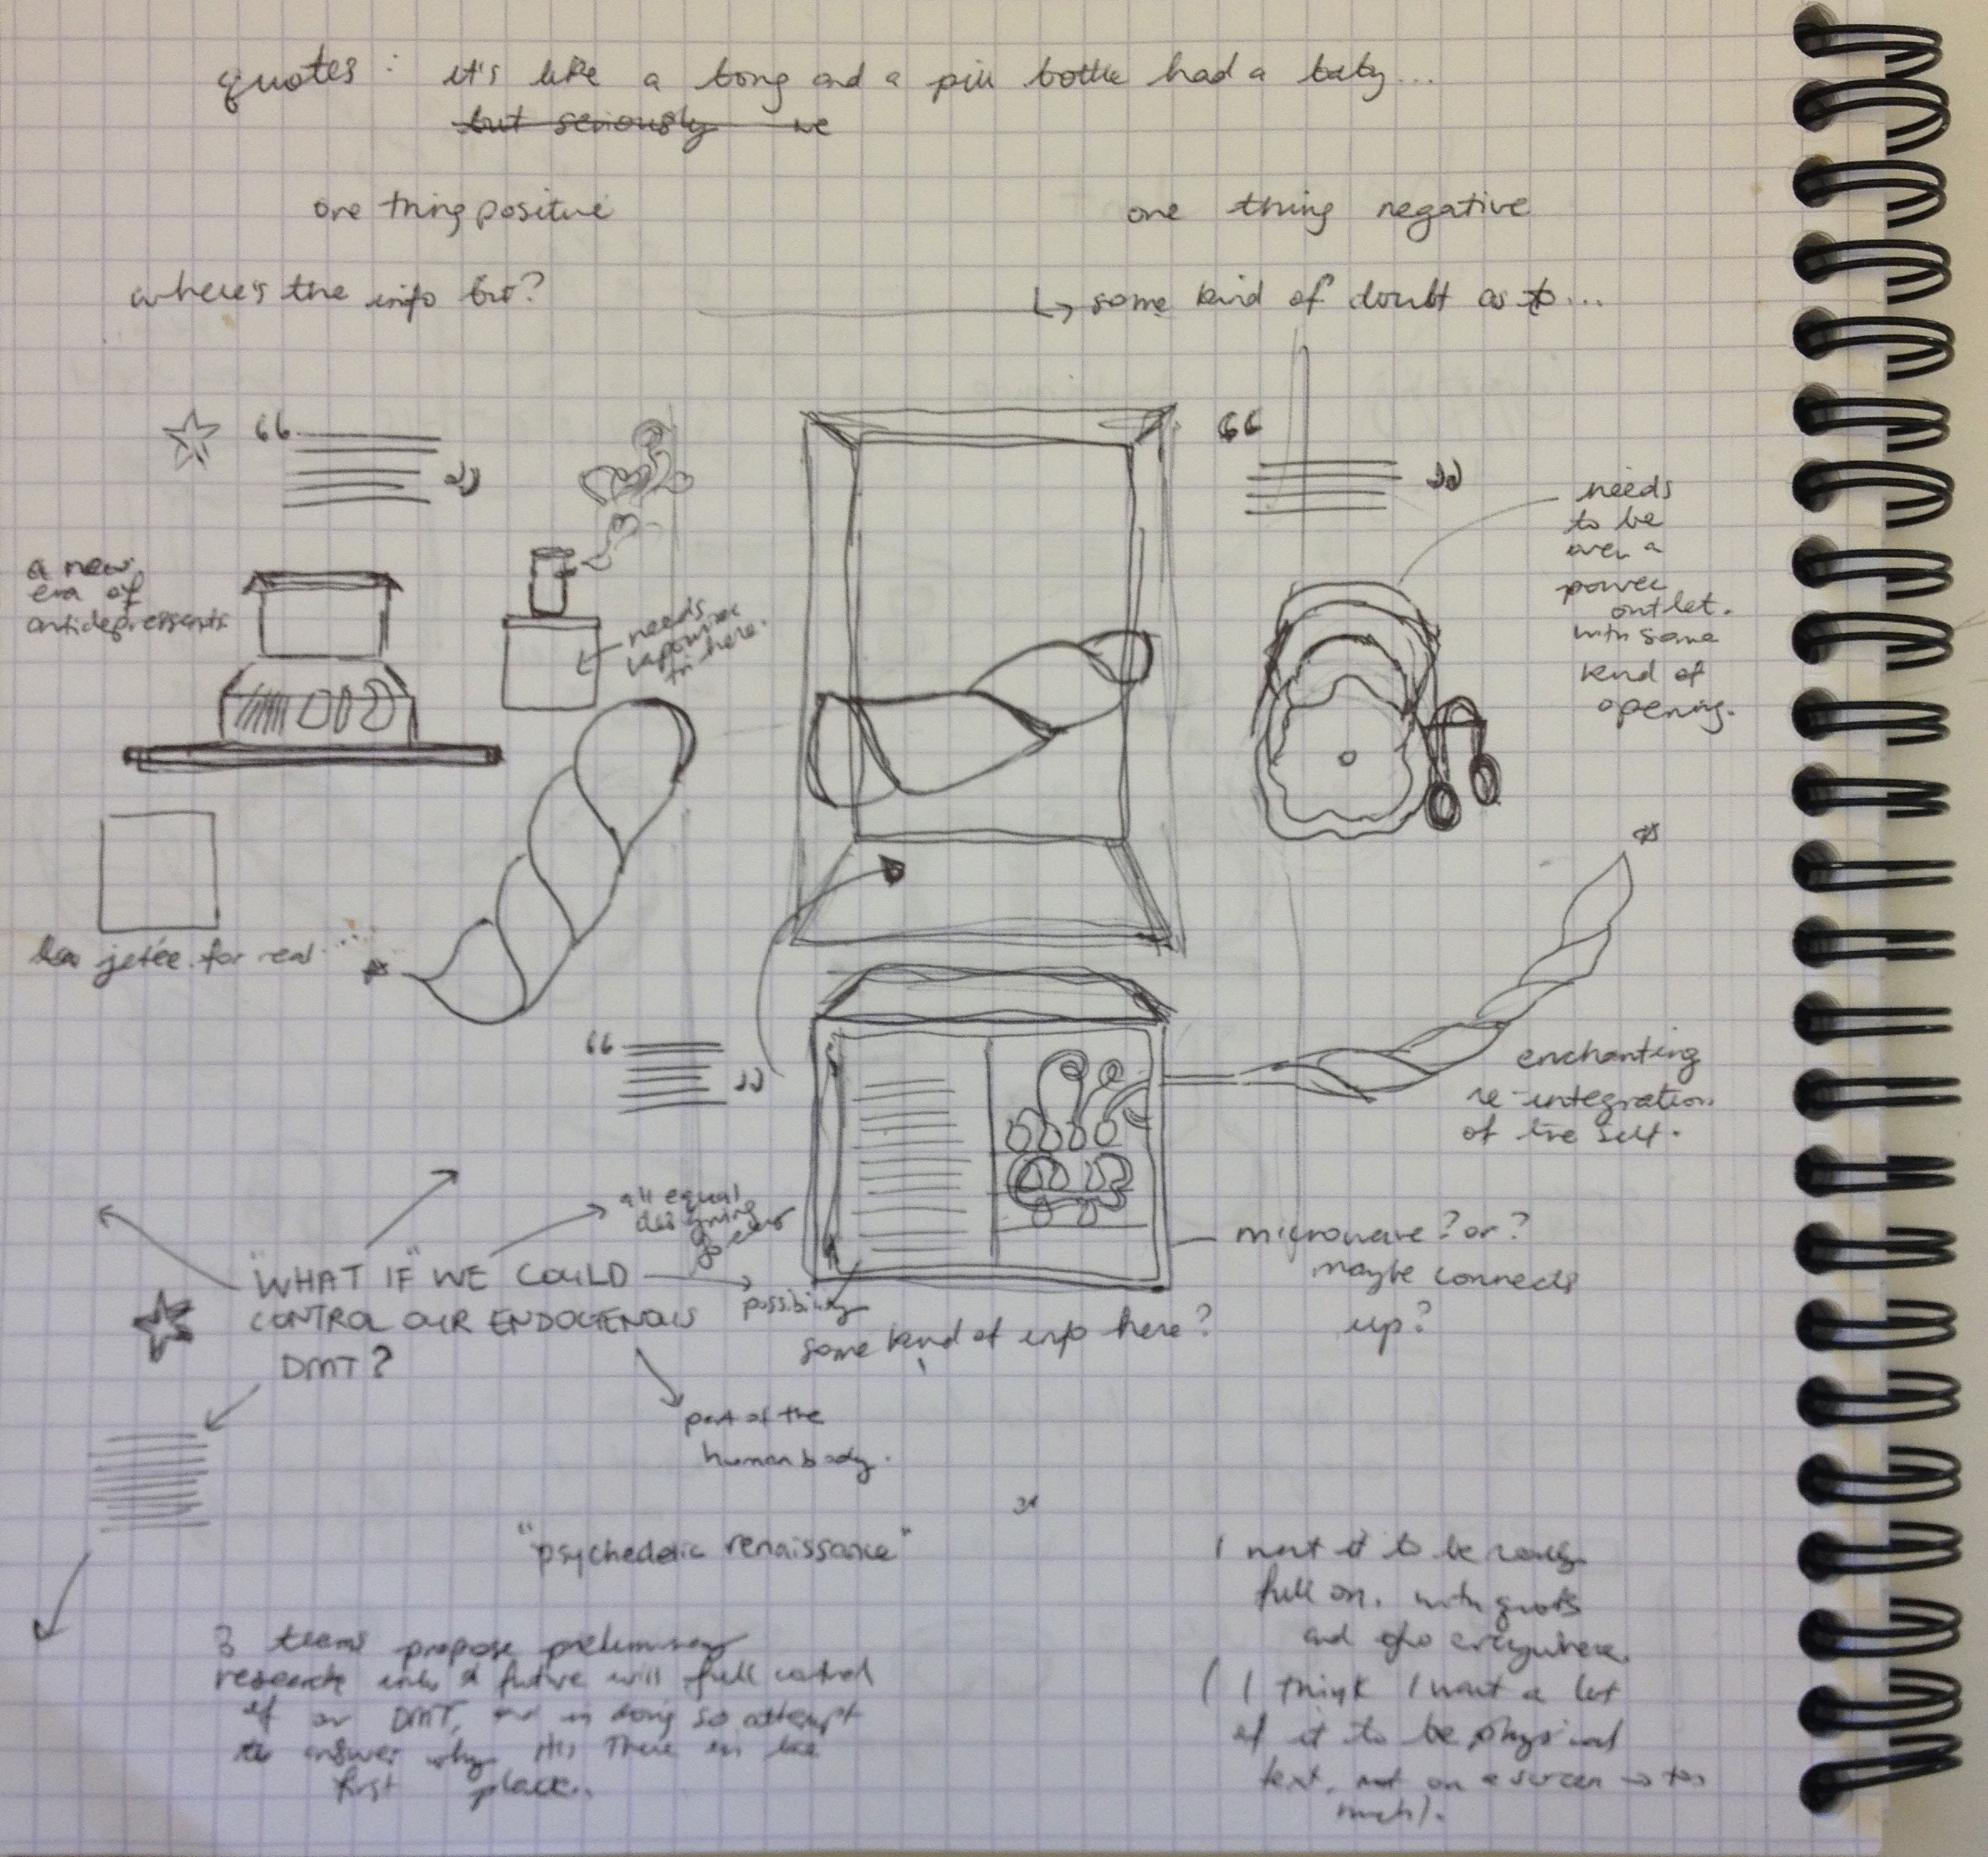 quotes : it's like a bong and a pill bottle had a baby...
but seriously we
one thing positive
one thing negative
where's the info bro?
↳ some kind of doubt as to...
needs
to be
over a
power
outlet.
with some
kind of
opening.
a new
era of
antidepressants
needs
vaporizer
in here.
la jetée. for real...
enchanting
re-integration
of the self.
all equal
designing
"WHAT IF" WE COULD
CONTROL OUR ENDOGENOUS
DMT?
possibility
microwave? or?
maybe connects
up?
some kind of info here?
part of the
human body.
"psychedelic renaissance"
I want it to be really
full on. with quotes
and info everywhere.
( I think I want a lot
of it to be physical
text, not on a screen → too
much).
3 teams propose preliminary
research into a future with full control
of our DMT, and in doing so attempt
to answer why it's there in the
first place..